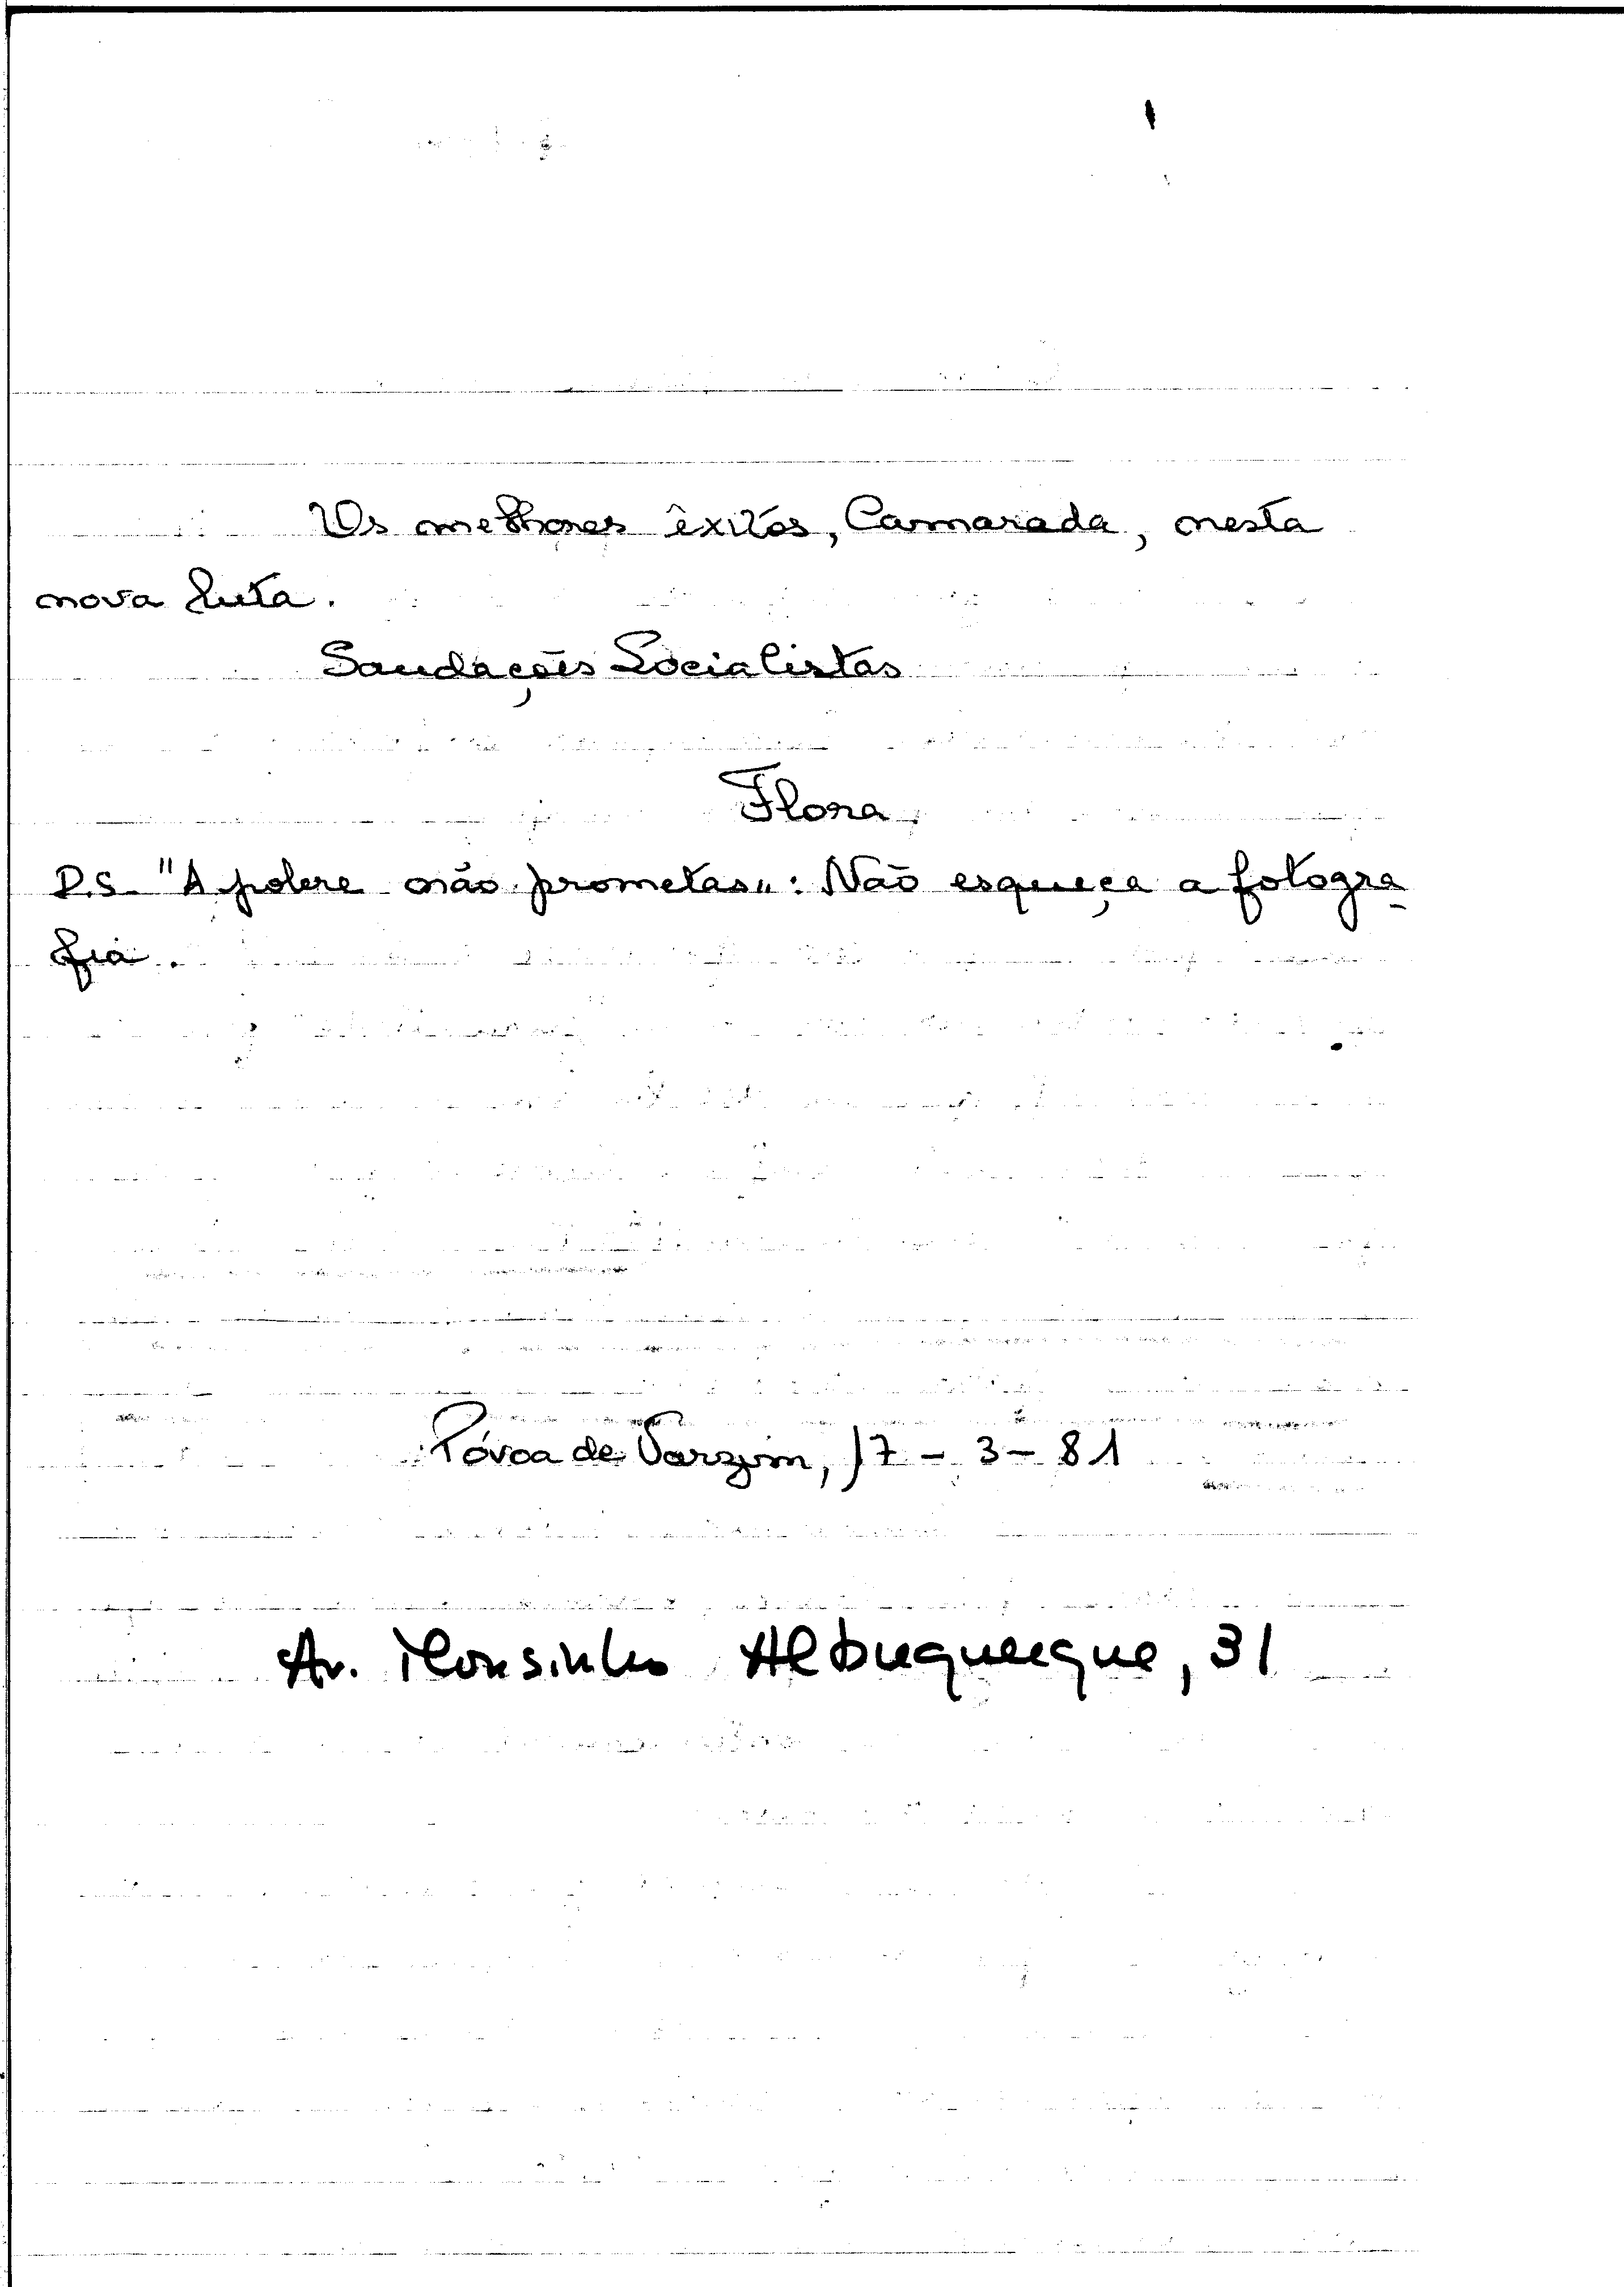 Os melhores êxitos, Camarada, nesta
nova luta.
Saudações Socialistas
Flora
P.S. "A pobre não prometas": Não esqueça a fotogra
fia.
Póvoa de Varzim, 17-3-81
Av. Mousinho Albuquerque, 31